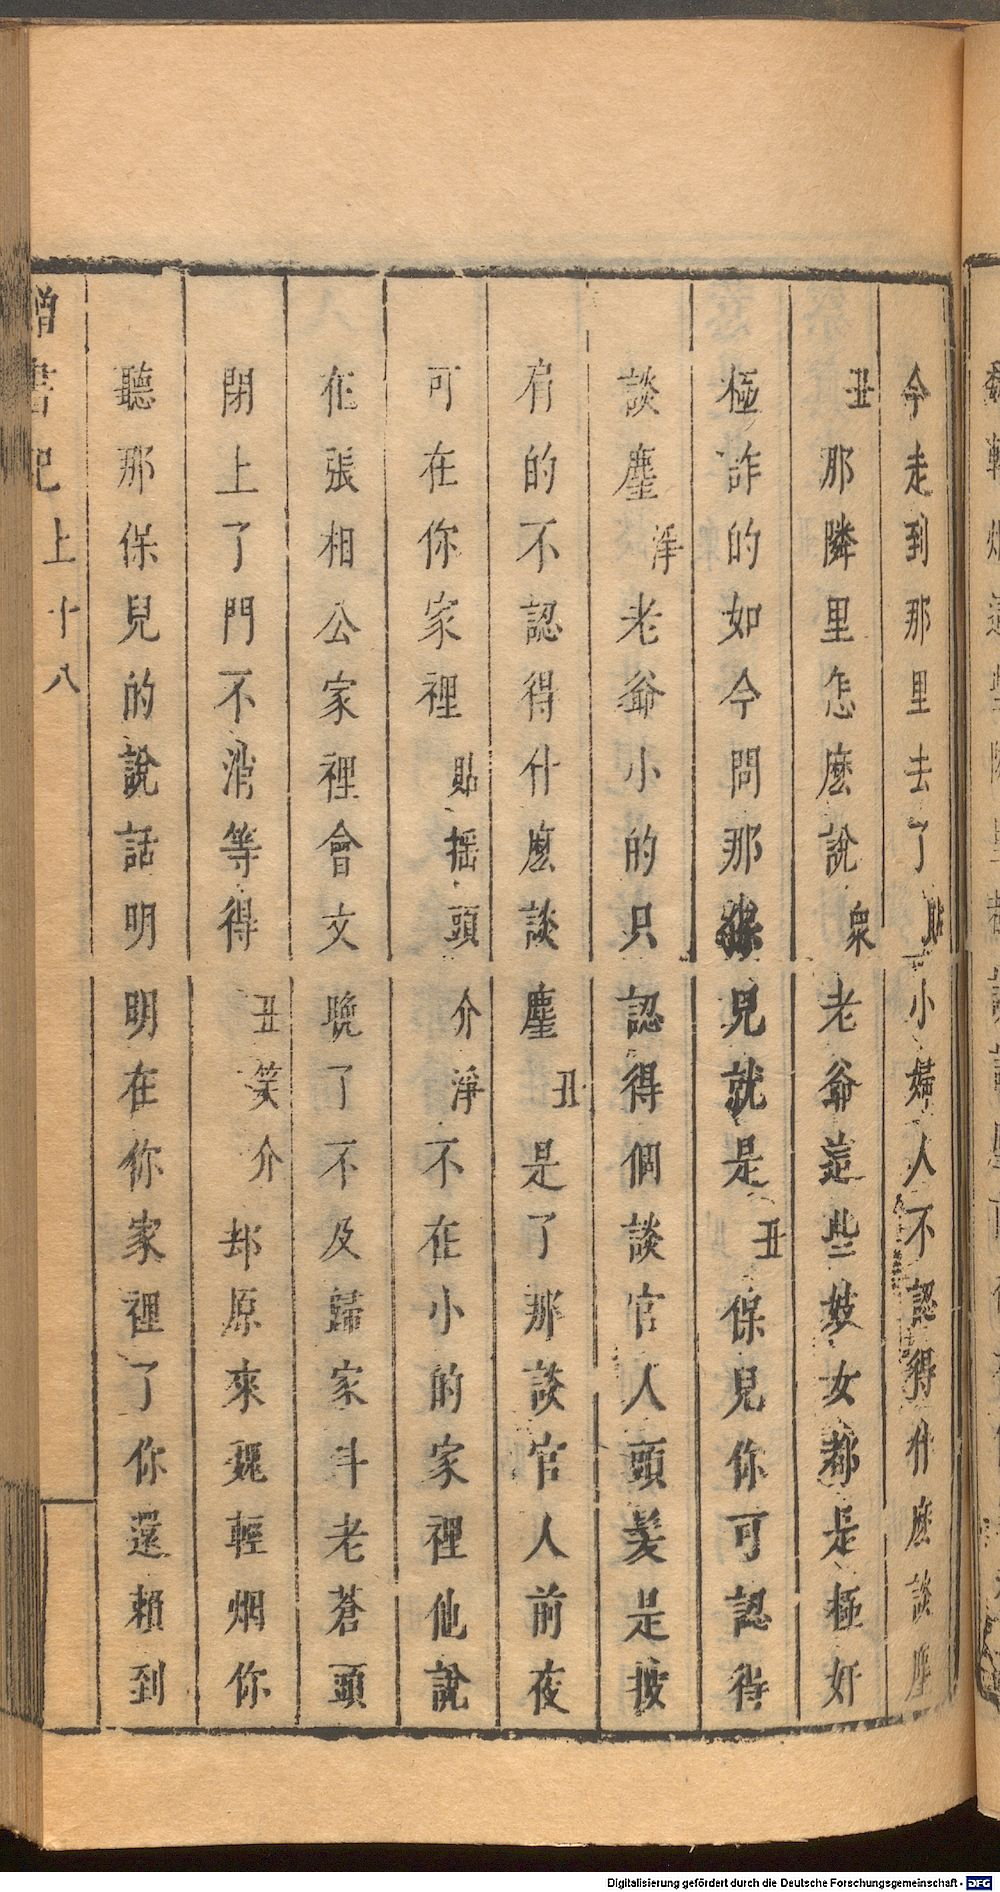 今走到那里去了貼小婦人不認得什麽談塵
丑那隣里怎麽說衆老爺這些妓女都是極奸
極詐的如今問那保兒就是丑保兒你可認得
談塵淨老爺小的只認得個談官人頭髪是披
肩的不認得什麽談塵丑是了那談官人前夜
可在你家裡貼揺頭介淨不在小的家裡他說
在張相公家裡會文晩了不及歸家斗老蒼頭
閉上了門不消等得丑笑介却原來魏輕烟你
聽那保兒的說話明明在你家裡了你還賴到
書記
上十八
Digitalisierung gefördert durch die Deutsche Forschungsgemeinschaft - DFG